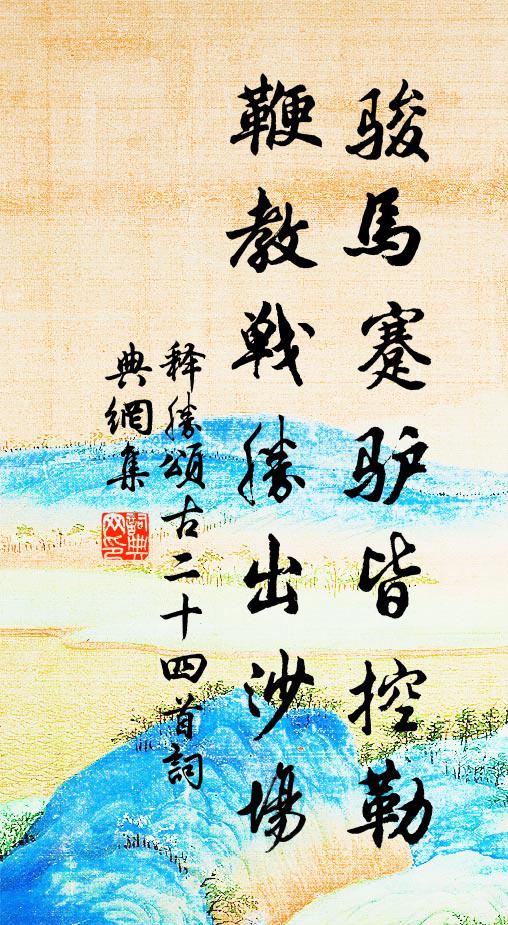 骏馬蹇驴皆控勒
鞭教戦勝出沙場
释勝頌古二十四首詞
典網集
詞典
网印